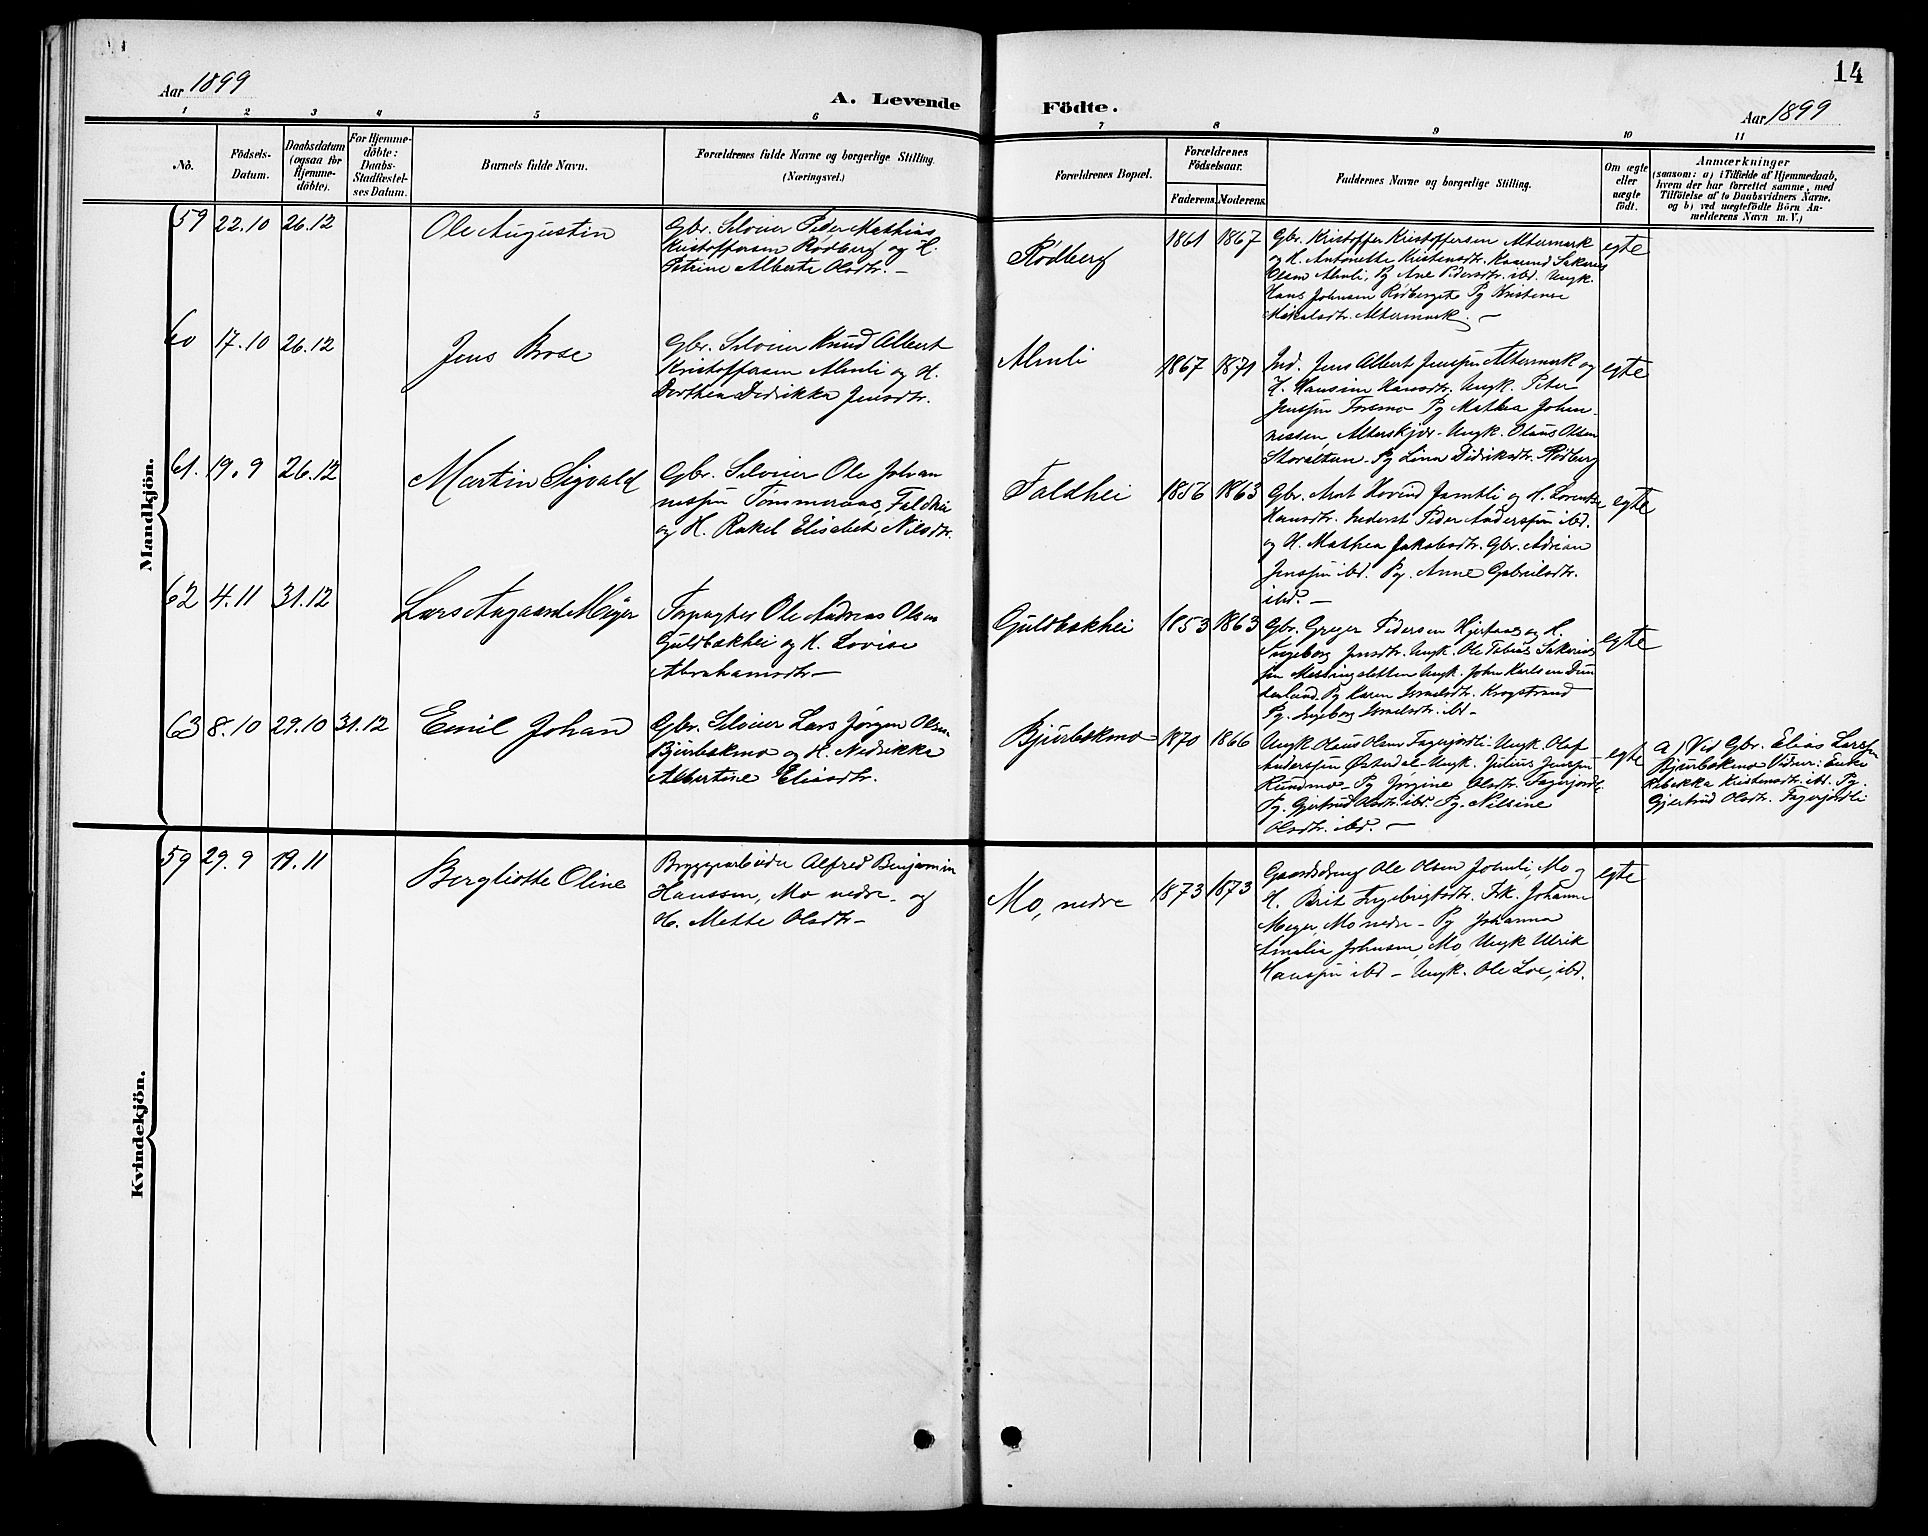 Aar 1899
A. Levende
Födte.
14
Aar 1899
1 2 3 4 5 6 7 8 9 10 11
No.
Födsels-
Datum.
Daabsdatum
(ogsaa for
Hjemme-
döbte).
For Hjemme-
döbte:
Daabs-
Stadfæstel-
ses Datum.
Barnets fulde Navn.
Forældrenes fulde Navne og borgerlige Stilling.
(Næringsvei.)
Forældrenes Bopæl.
Forældrenes
Födselsaar.
Faderens. Moderens.
Faddernes Navne og borgerlige Stilling.
Om ægte
eller
uægte
födt.
Anmærkninger
(saasom: a) i Tilfælde af Hjemmedaab,
hvem der har forrettet samme, med
Tilföielse af to Daabsvidners Navne,
og b) ved uægtefödte Börn An-
melderens Navn m. V.)
Mandkjön.
59 22.10 26.12
Ole Augustin
Gbr. Selveier Peder Mathias
Kristoffersen Rødberg og H.
Petrine Alberte Olsdtr. —
Rødberg
1861 1867
Gbr. Kristoffer Kristoffersen Altermark
og H. Antonette Kristensdtr.
Olsen Almli, Pg Ane Pedersdtr. ibd. Ungk.
Hans Johnsen Rødberget Pg Kristense
Mikalsdtr. Altermark. —
egte
60 17.10 26.12
Jens Brose
Gbr. Selveier Knud Albert
Kristoffersen Almli og H.
Dorthea Didrikka Jensdtr.
Almli
1867 1871
Ind. Jens Albert Jenssen Altermark og
H. Hansine Hansdtr. Ungk. Peter
Jenssen Forsmo Pg Mathea Johan-
nessen, Alterskjær - Ungk. Olaus Olsen
Storalteren - Pg Lina Didriksdtr. Rødberg
egte
61. 19.9 26.12
Martin Sigvald
Gbr. Selveier Ole Johan
nessen Tømmeraas, Faldhei
og H. Rakel Elisabet Nilsdtr.
Faldhei
1856 1863
Gbr. Ant Hovind Jamtli og H. Lorentze
Hansdtr. Inderst Peder Anderssen ibd.
og H. Mathea Jakobsdtr. Gbr. Adrian
Jenssen ibd. Pg. Anne Gabrielsdtr.
ibd. —
egte
62 4.11 31.12
Lars Aagaard Meyer
Forpagter Ole Andreas Olsen
Guldbakhei og H. Lovise
Abrahamsdtr —
Guldbakhei
1853 1863
Gbr. Greger Pedersen Hjertaas og H.
Ingeborg Jensdtr. Ungk. Ole Tobias Sakarias
sen Messingsletten Ungk. John Karlsen Dun
derland Pg Karen Israelsdtr. Krogstrand
Pg. Ingeborg Israelsdtr. ibd -
egte
63 8.10 29.10 31.12
Emil Johan
Gbr. Selveier Lars Jørgen Olsen
Bjurbækmo og H. Nedrikke
Albertine Eliasdtr.
Bjurbækmo
1870 1866
Ungk Olaus Olsen Fagerjordli - Ungk Olaf
Anderssen Østerdal - Ungk. Julius Jenssen
Rundmo - Pg Jørgine Olsdtr. Fagerjordli
Pg. Gjertrud Olsdtr. ibd. Pg. Nilsine
Olsdtr. ibd. —
egte
a) Ved Gbr. Elias Larssen
Bjurbækmo Vidner: Enke
Rebekka Kristensdtr. ibd. Pg.
Gjertrud Olsdtr. Fagerjordli
Kvindekjön.
59 29.9 19.11
Bergliotte Oline
Bryggearbeider Alfred Benjamin
Hanssen, Mo nedre - og
H. Mette Olsdtr —
Mo, nedre
1873 1873
Gaardsdreng Ole Olsen Johnli, Mo og
H. Brit Ingebrigtsdtr. Frk. Johanne
Meyer, Mo nedre - Pg Johanna
Amalia Johnsen, Mo, Ungk Ulrik
Hanssen ibd - Ungk. Ole Loe, ibd.
egte